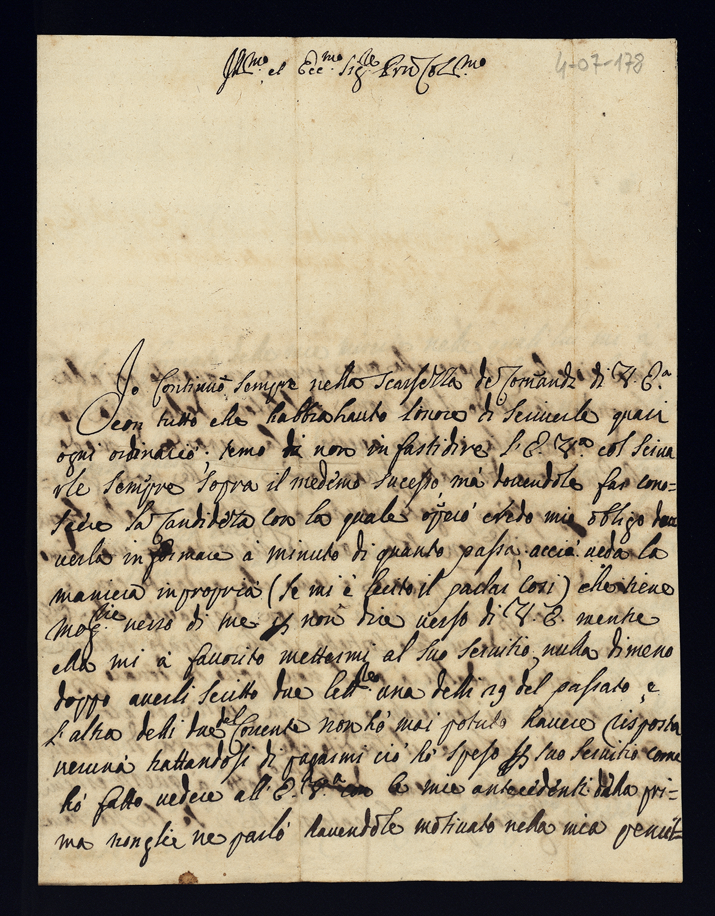 Ill.mo et Ecc.mo Sig.re Prn Col.mo
4-07-178
Io Continuo sempre nella scarsezza de Comandi di V. E.a
con tutto che habbia hauto lonore di scriverle quasi
ogni ordinario; temo di non in fastidire l'E. V.a col scriue
rle sempre sopra il medemo sucesso, ma douendole far cono=
sciere la Candidezza con la quale opero credo mio obligo
uerla informare a minuto di quanto passa accio ueda la
maniera inpropria (se mi è lecito il parlar cosi) che tiene
uerso di me non dire uerso di V. E. mentre
ella mi à fauorito mettermi al suo seruitio, nulla dimeno
doppo auerli scritto due lett.re una delli 29 del passato, e
l'altra delli due del Corente non hò mai potuto hauere risposta
ueruna trattandosi di pagarmi ciò hò speso suo seruitio come
hò fatto uedere all'E. V.a con le mie antecedenti dalla pri=
ma non glie ne parlò hauendole motiuato nella mia